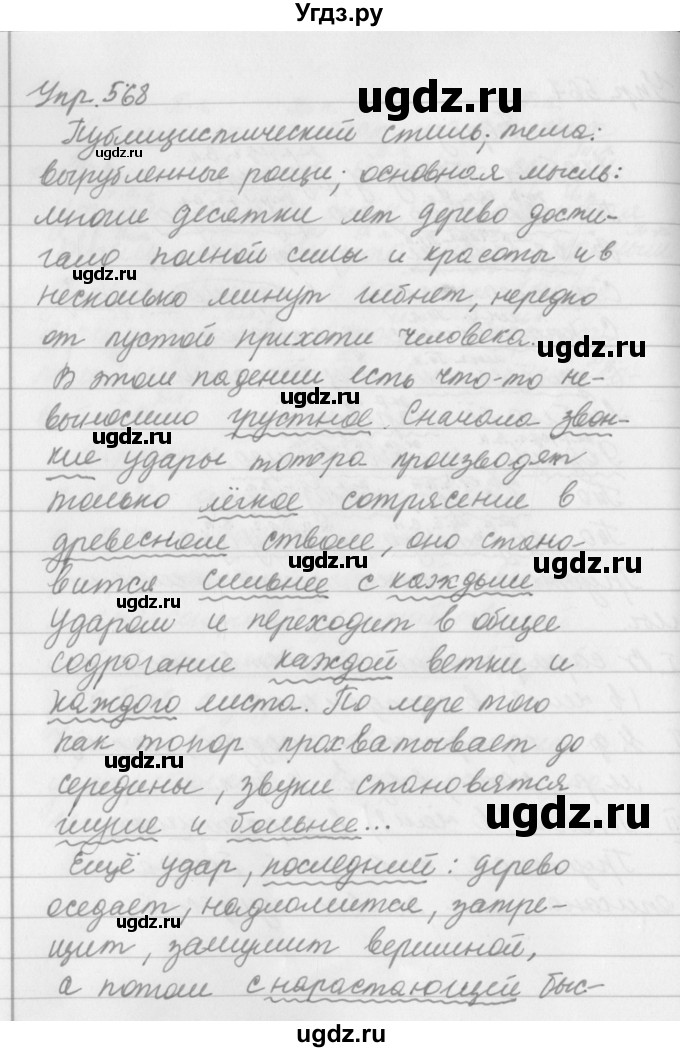 Угдз.ру
Упр. 568
ugdz.ru
Публицистический стиль; тема:
ugdz.ru
вырубленные рощи; основная мысль:
многие десятки лет дерево дости-
гало полной силы и красоты и в
ugdz.ru
несколько минут гибнет, нередко
от пустой прихоти человека.
ugdz.ru
В этом падении есть что-то не-
выносимо грустное. Сначала звон-
ugdz.ru
кие удары топора производят
только лёгкое сотрясение в
древесном стволе, оно стано-
ugdz.ru
ugdz.ru
вится сильнее с каждым
ugdz.ru
ударом и переходит в общее
содрогание каждой ветки и
каждого листа. По мере того
как топор прохватывает до
ugdz.ru
середины, звуки становятся
ugdz.ru
глуше и больнее...
Ещё удар, последний: дерево
оседает, надломится, затре-
ugdz.ru
щит, зашумит вершиной,
а потом с нарастающей быс-
ugdz.ru